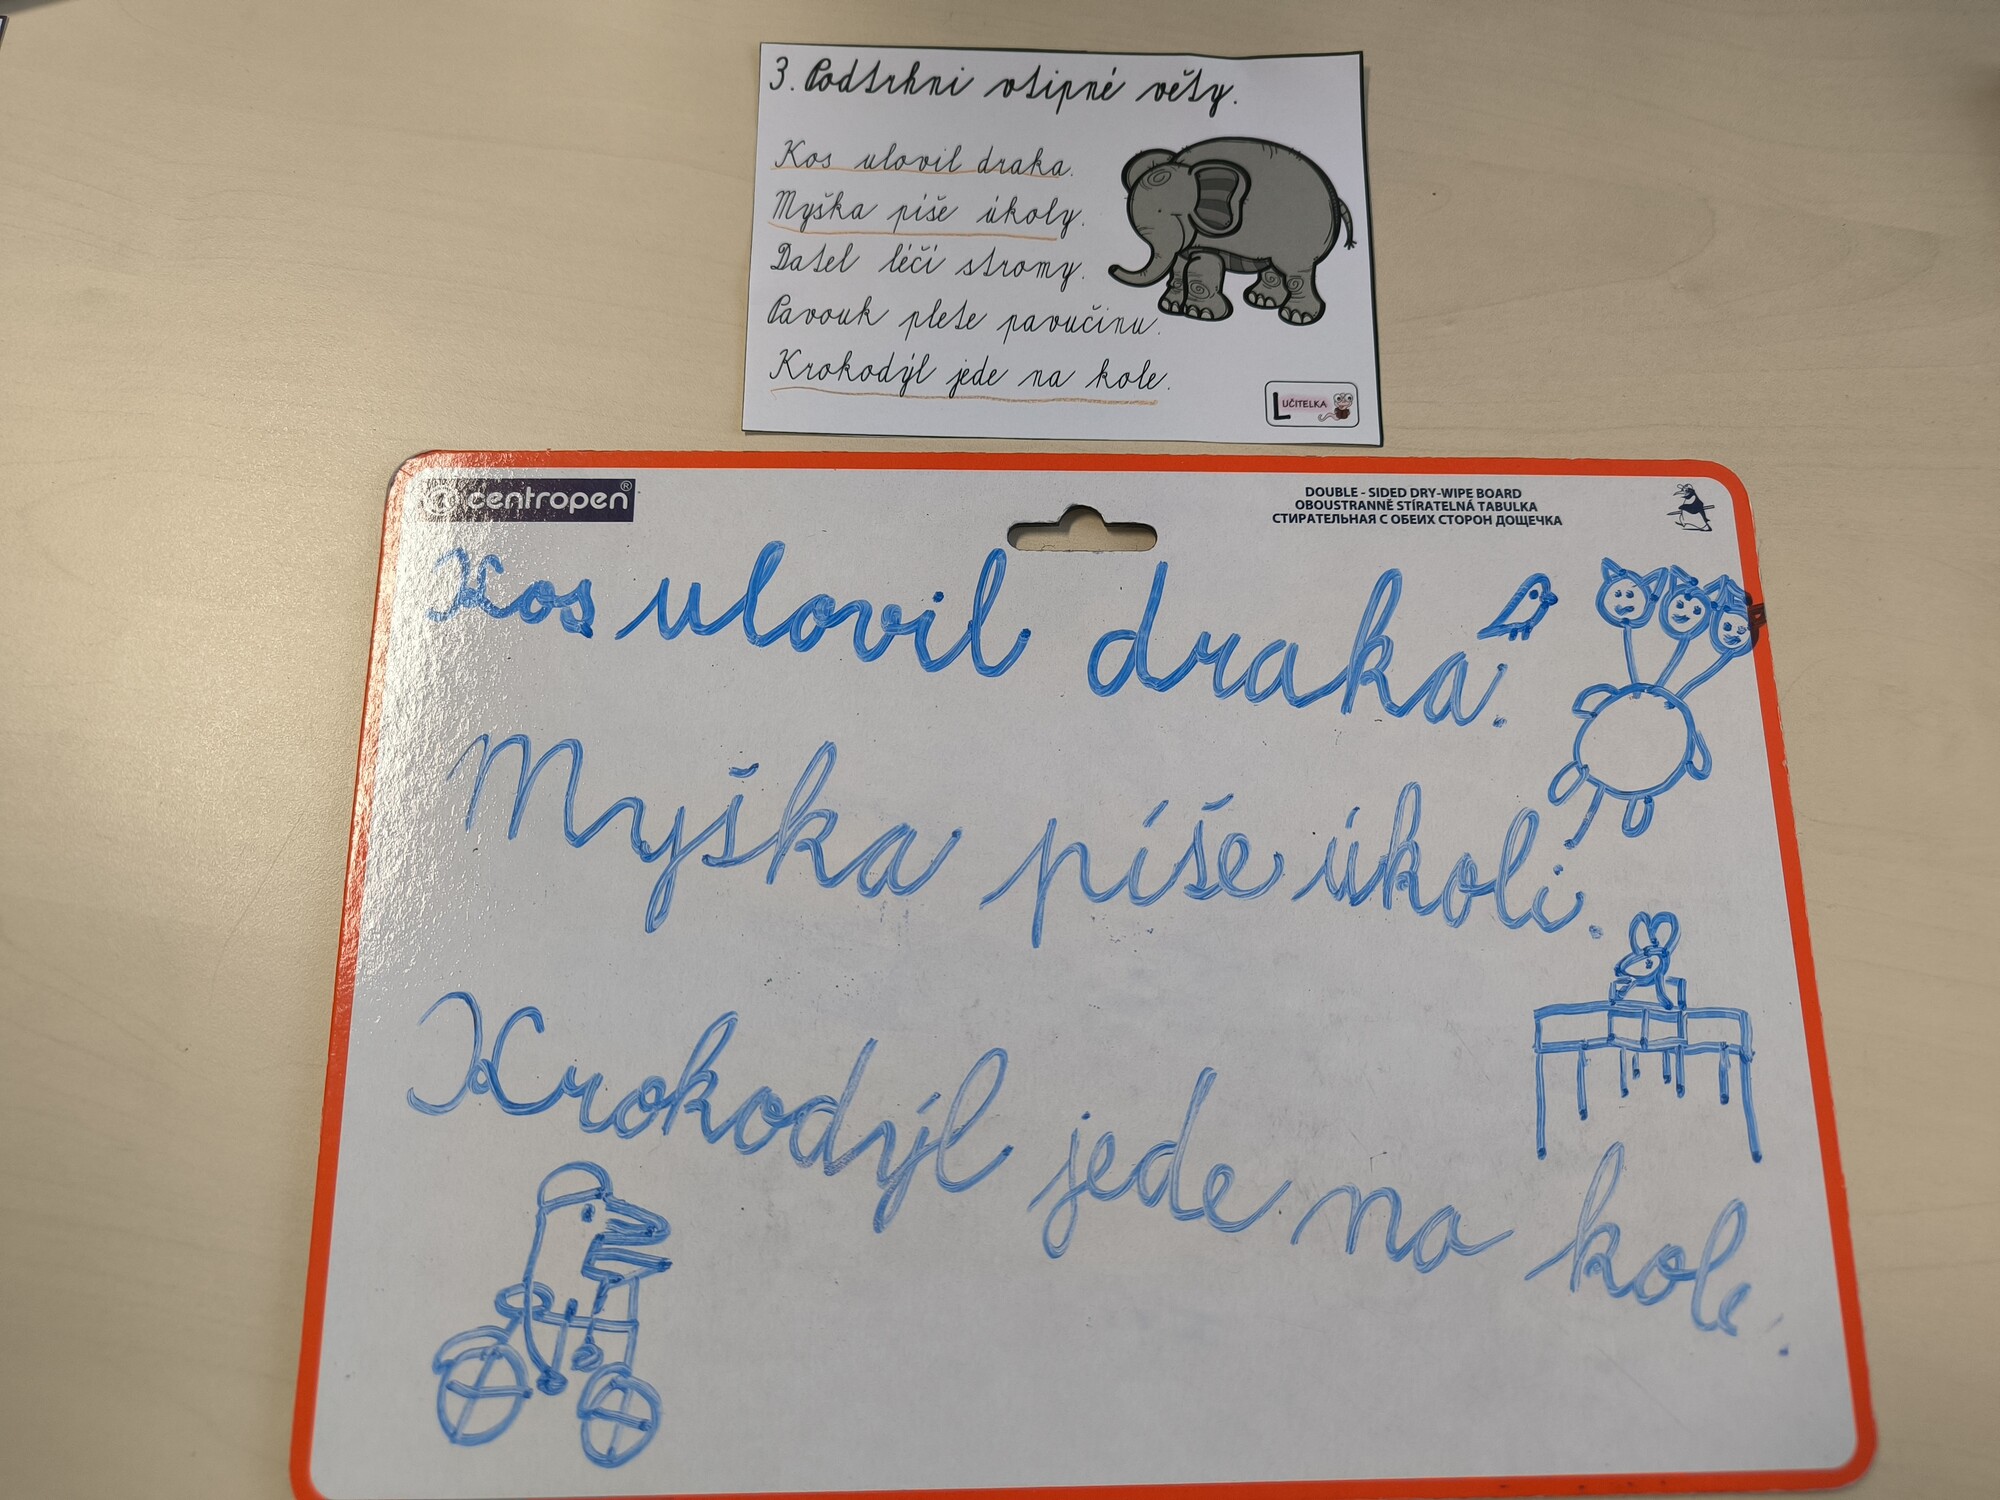 3. Podtrhni vtipné věty.
Kos ulovil draka.
Myška píše úkoly.
Datel léčí stromy.
Pavouk plete pavučinu.
Krokodýl jede na kole.
LUČITELKA
centropen®
DOUBLE - SIDED DRY-WIPE BOARD
OBOUSTRANNĚ STÍRATELNÁ TABULKA
СТИРАТЕЛЬНАЯ С ОБЕИХ СТОРОН ДОЩЕЧКА
Kos ulovil draka.
Myška píše úkoli.
Krokodýl jede na kole.